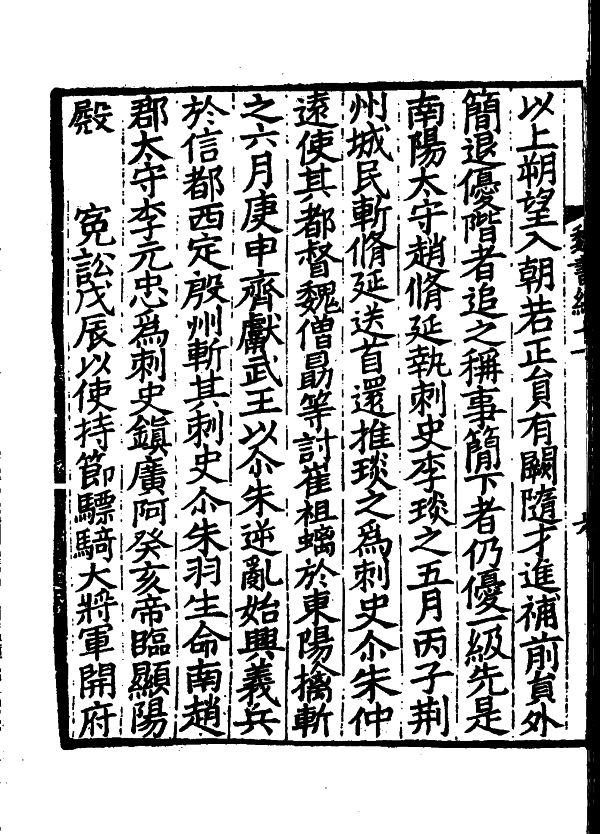 以上朔望入朝若正員有闕隨才進補前員外
簡退優階者追之稱事簡下者仍優一級先是
南陽太守趙脩延執刺史李琰之五月丙子荆
州城民斬脩延送首還推琰之爲刺史尒朱仲
遠使其都督魏僧勗等討崔祖螭於東陽擒斬
之六月庚申齊獻武王以尒朱逆亂始興義兵
於信都西定殷州斬其刺史尒朱羽生命南趙
郡太守李元忠爲刺史鎮廣阿癸亥帝臨顯陽
殿　寃訟戊辰以使持節驃騎大將軍開府